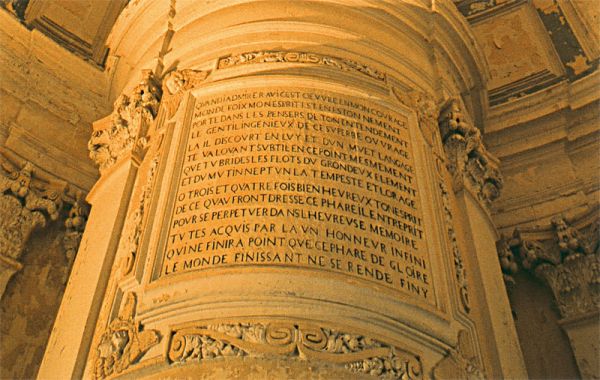 QVAND IADMIRE RAVI CEST OEVVRE EN MON COVRAGE
MON DE FOIX MON ESPRIT EST EN ESTONNEMENT
PORTE DANS LES PENSERS DE TON ENTENDEMENT
LE GENTIL INGENIEVX DE CE SVPERBE OVVRAGE
LA IL DISCOVRT EN LVY ET DVN MVET LANGAGE
TE VA LOVANT SVBTIL EN CE POINT MESMEMENT
QVE TV BRIDES LES FLOTS DV GRONDEVX ELEMENT
ET DV MVTIN NEPTVN LA TEMPESTE ET LORAGE
O TROIS ET QVATRE FOIS BIEN HEVREVX TON ESPRIT
DE CE QVAV FRONT DRESSE CE PHARE IL ENTREPRIT
POVR SE PERPETVER DANS LHEVREVSE MEMOIRE
TV TES ACQVIS PAR LA VN HONNEVR INFINI
QVI NE FINIRA POINT QVE CE PHARE DE GLOIRE
LE MONDE FINISSANT NE SE RENDE FINY